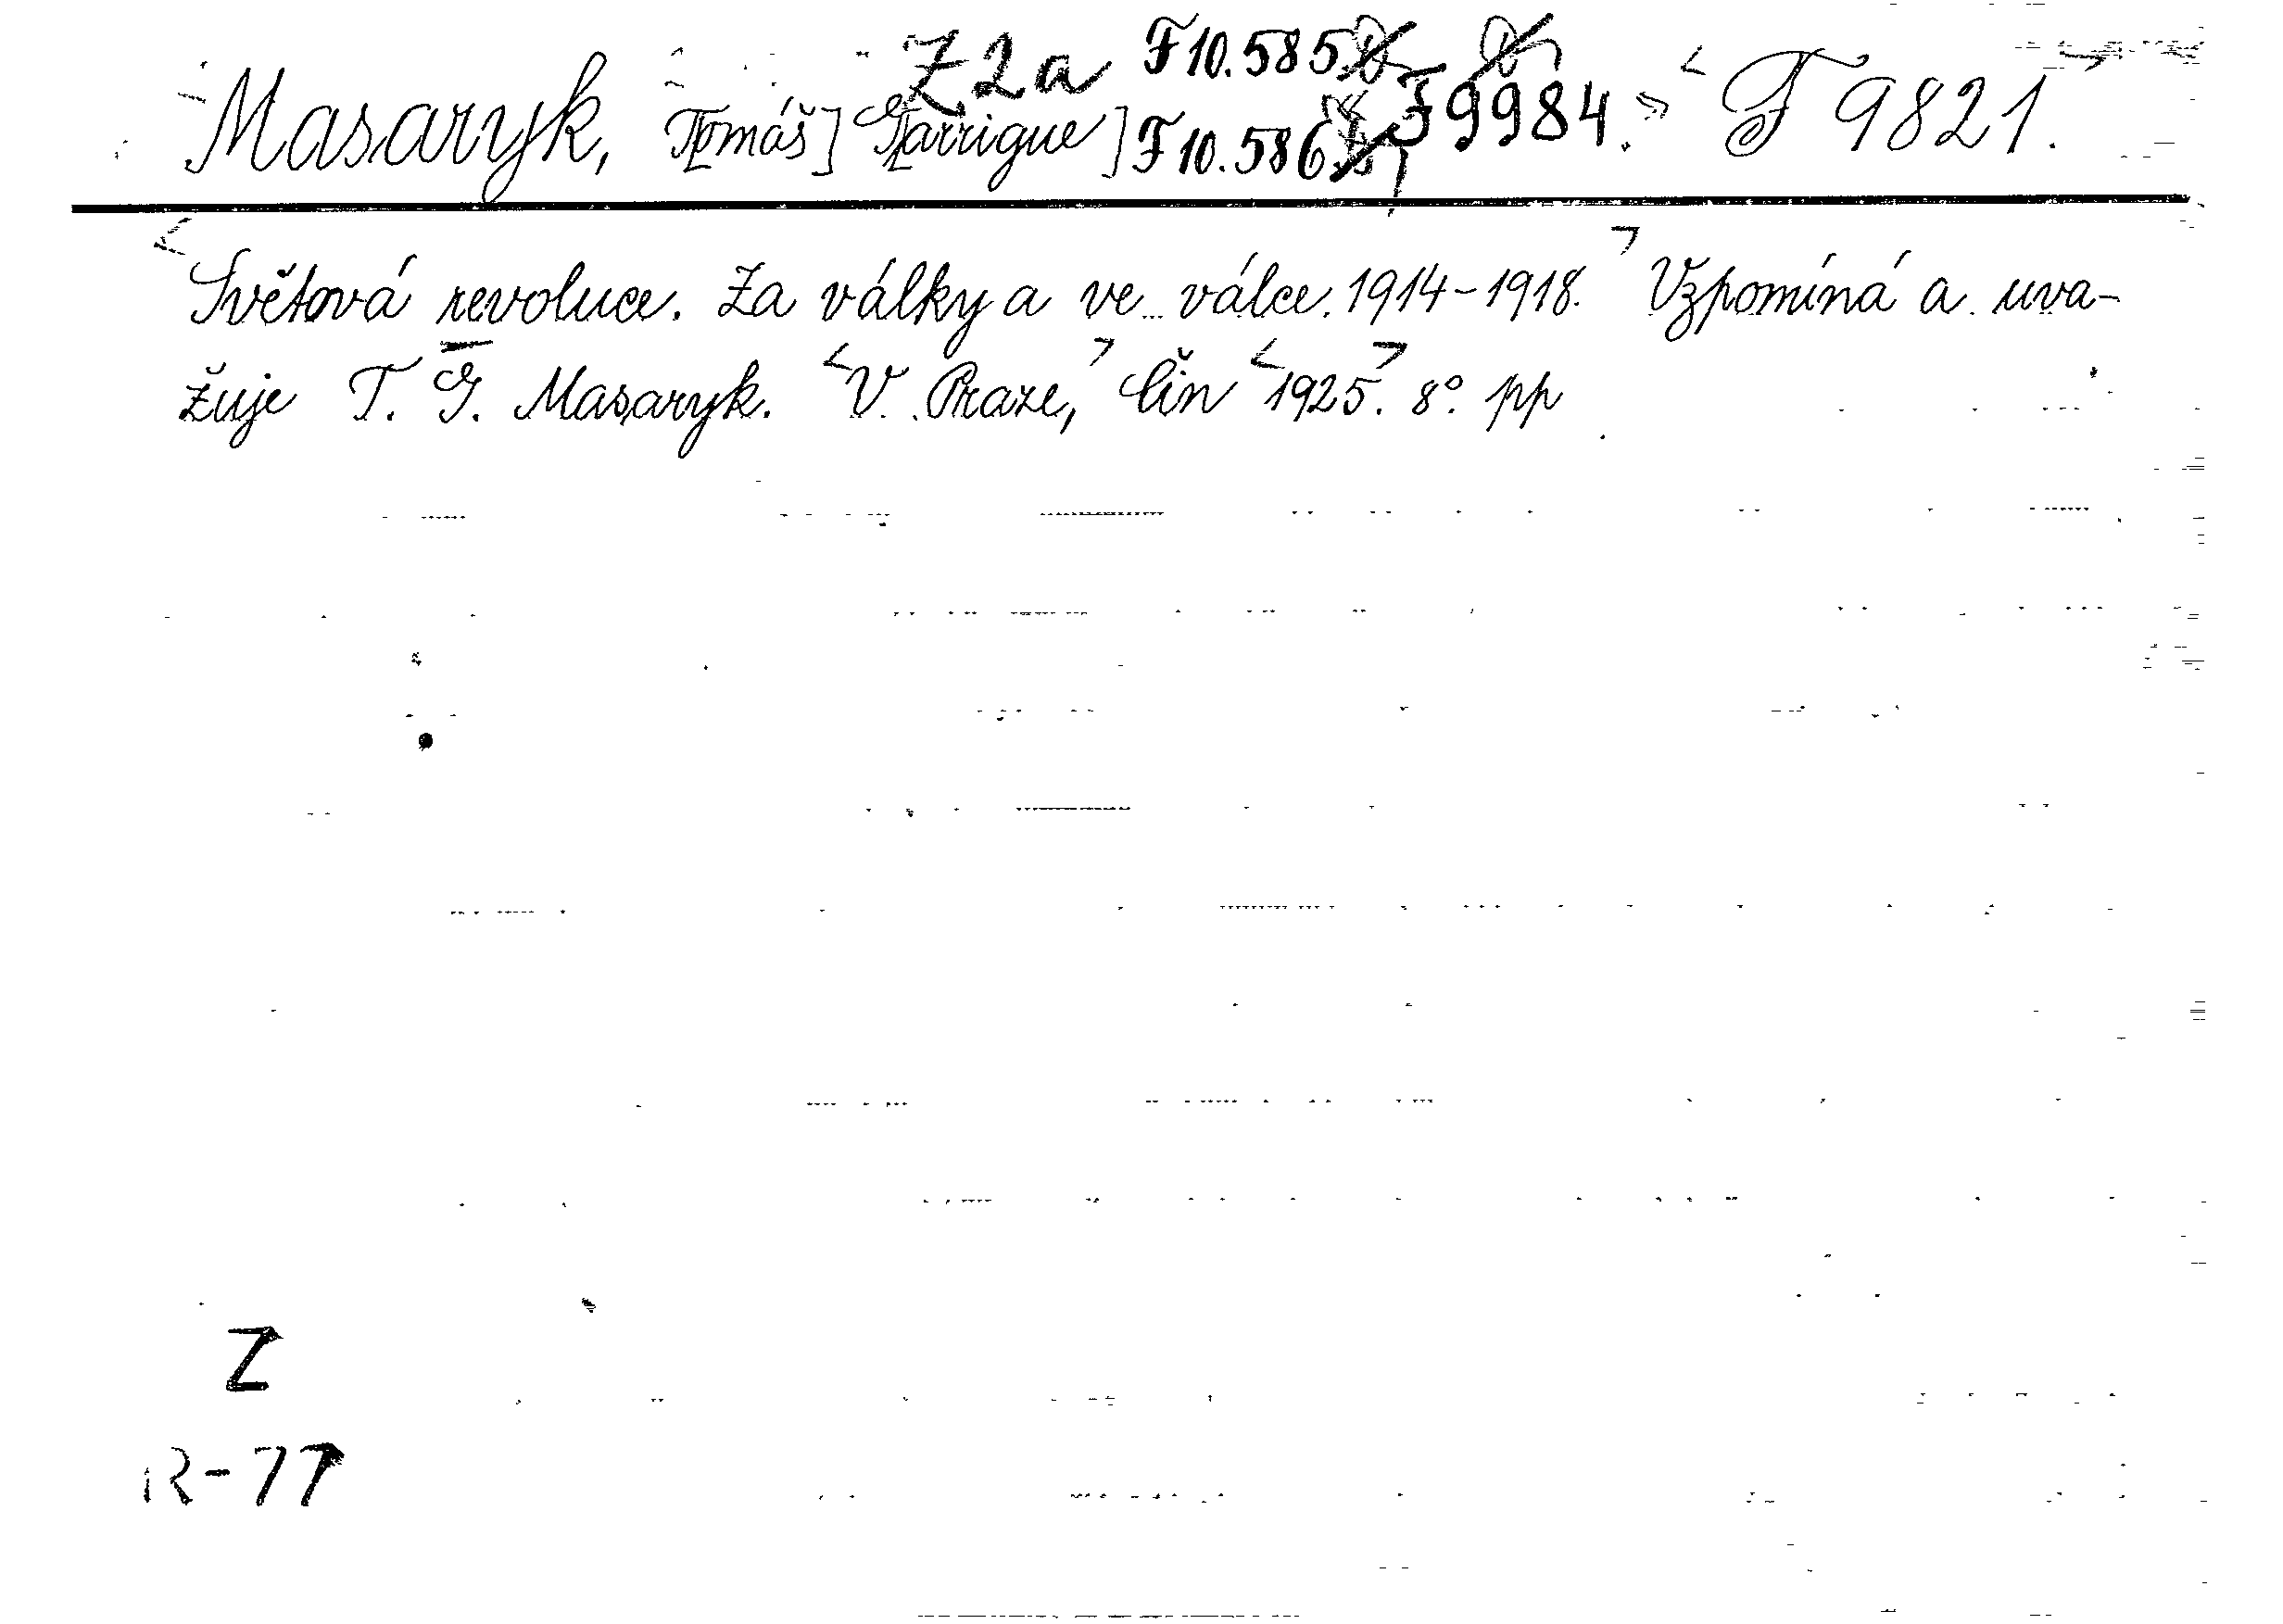 Z2a F10.585 F9984. F 9821.
Masaryk, T[omáš] G[arrigue] F10.586
Světová revoluce. Za války a ve válce 1914-1918. Vzpomíná a uva-
žuje T. G. Masaryk. V Praze, Čin 1925. 8° pp
Z
R-77